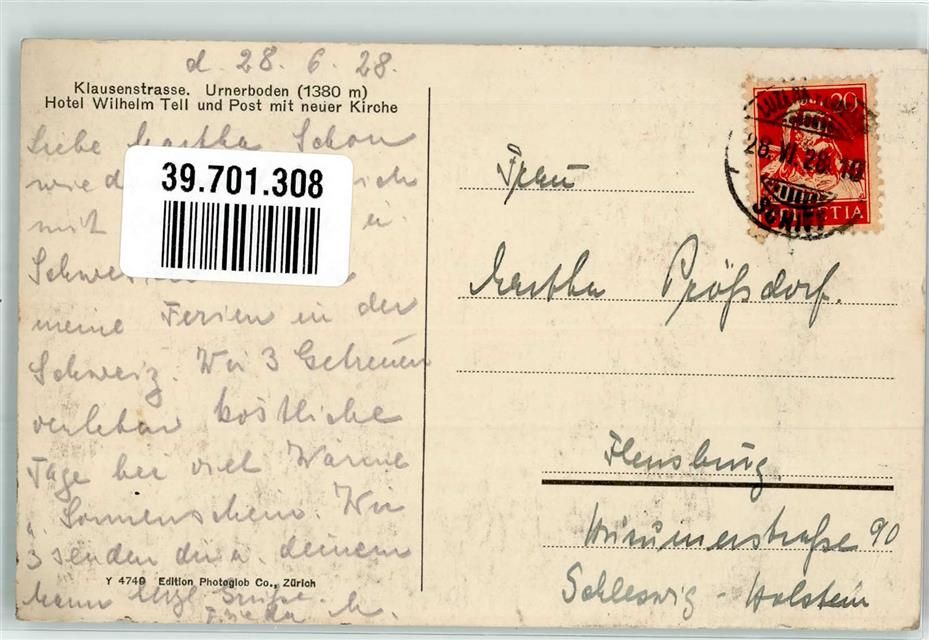 d. 28. 6. 28.
Klausenstrasse. Urnerboden (1380 m)
Hotel Wilhelm Tell und Post mit neuer Kirche
Liebe Martha Schon
39.701.308
wied ich
mit
Schwe
meine Ferien in der
Schweiz. Wir 3 Getreuen
verleben köstliche
Tage bei viel Wärme
u. Sonnenschein. Wir
3 senden dir u. deinem
Mann herzl Grüße.
Frieda M.
Y 4740 Edition Photoglob Co., Zürich
20
LUZERN
28. VI. 28. 19
HELVETIA
Frau
Martha Prößdorf.
Flensburg
straße 90
Schleswig - Holstein